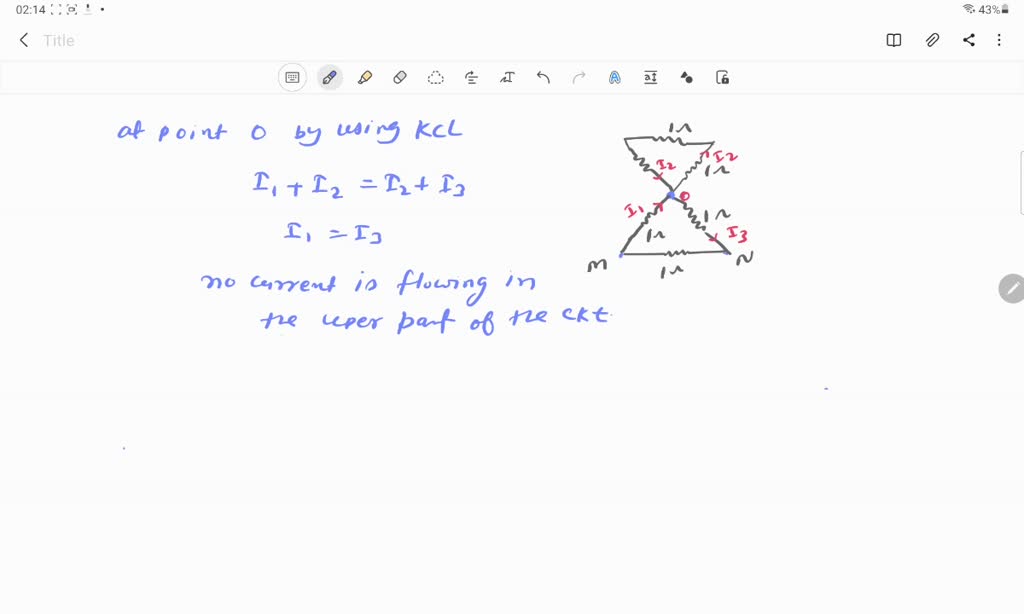 02:14
43%
Title
at point O by using KCL
I₁ + I₂ = I₂ + I₃
I₁ = I₃
no current is flowing in
the uper part of the ckt
1Ω
I₂
I₂
1Ω
O
I₁
1Ω
1Ω
I₃
M
1Ω
N